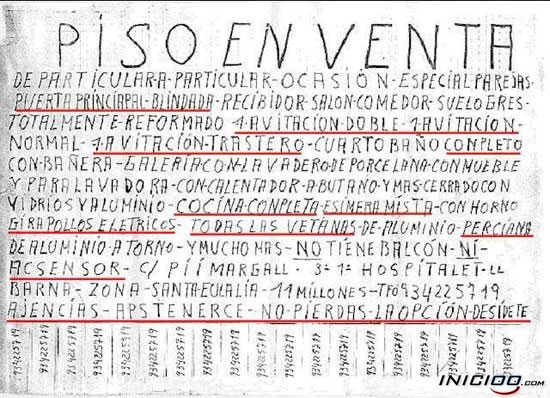 PISO EN VENTA
DE PARTICULAR-A-PARTICULAR-OCASIÓN-ESPECIAL PAREJAS-
PUERTA PRINCIAPAL-BLINDADA-RECIBIDOR-SALON-COMEDOR-SUELO GRES-
TOTALMENTE-REFORMADO 1-AVITACION-DOBLE-1-AVITACION-
NORMAL-1-AVITACIÓN-TRASTERO-CUARTO BAÑO COMPLETO
CON-BAÑERA-GALERÍA CON-LAVADERO-DE PORCELANA-CON MUEBLE
Y PARA LAVADORA-CON-CALENTADOR-A BUTANO-Y MAS-CERRADO CON
VIDRIOS Y ALUMINIO-COCINA-COMPLETA-ESIMERA MISTA-CON HORNO
GIRA POLLOS ELETRICOS-TODAS LAS VETANAS-DE ALUMINIO-PERCIANA
DE ALUMINIO A TORNO-Y MUCHO MAS-NO TIENE BALCÓN-NI-
ACSENSOR-C/ PÍ I MARGALL-3ª-1ª HOSPITALET-LL
BARNA-ZONA-SANTA-EULALIA-11 MILLONES-TFO 934225719
AJENCÍAS-APSTENERCE-NO-PIERDAS-LA OPCIÓN-DESÍDETE
INICIOO.COM